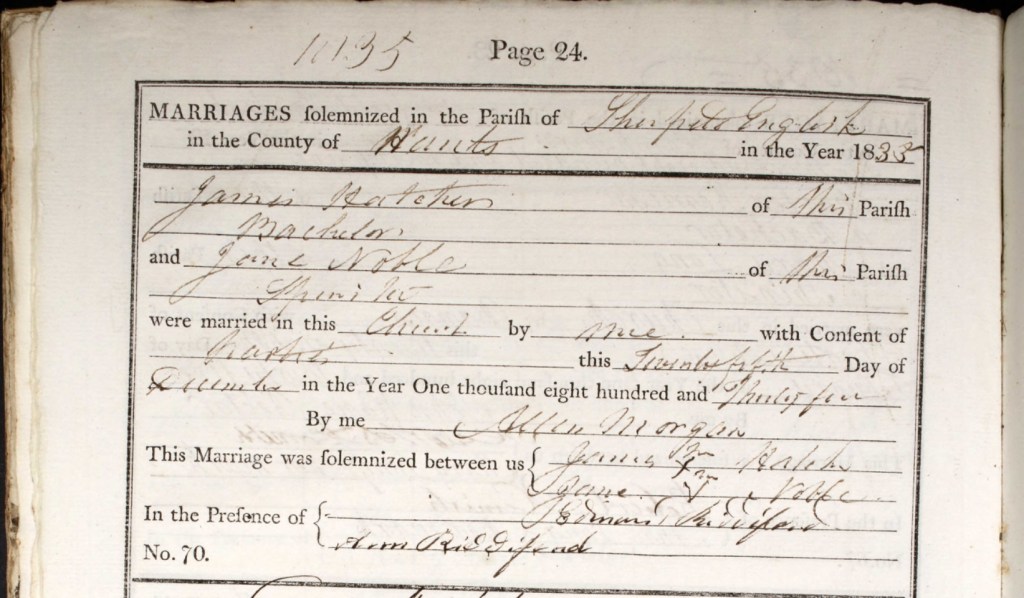 1835 Page 24.
MARRIAGES solemnized in the Parish of English
in the County of Hants in the Year 1835
James Hatcher of this Parish
Bachelor
and Jane Noble of this Parish
Spinster
were married in this Church by me with Consent of
this Day of
December in the Year One thousand eight hundred and Thirty five
By me Allen Morgan
This Marriage was solemnized between us James Hatcher
Jane Noble
In the Presence of
Ann Ridgiford
No. 70.